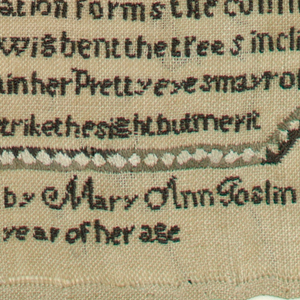 ation forms the comm
wigbentthetrees incli
ainher Pretty eyes may rol
trikethesightbutmerit
by Mary Ann Goslin
year of her age